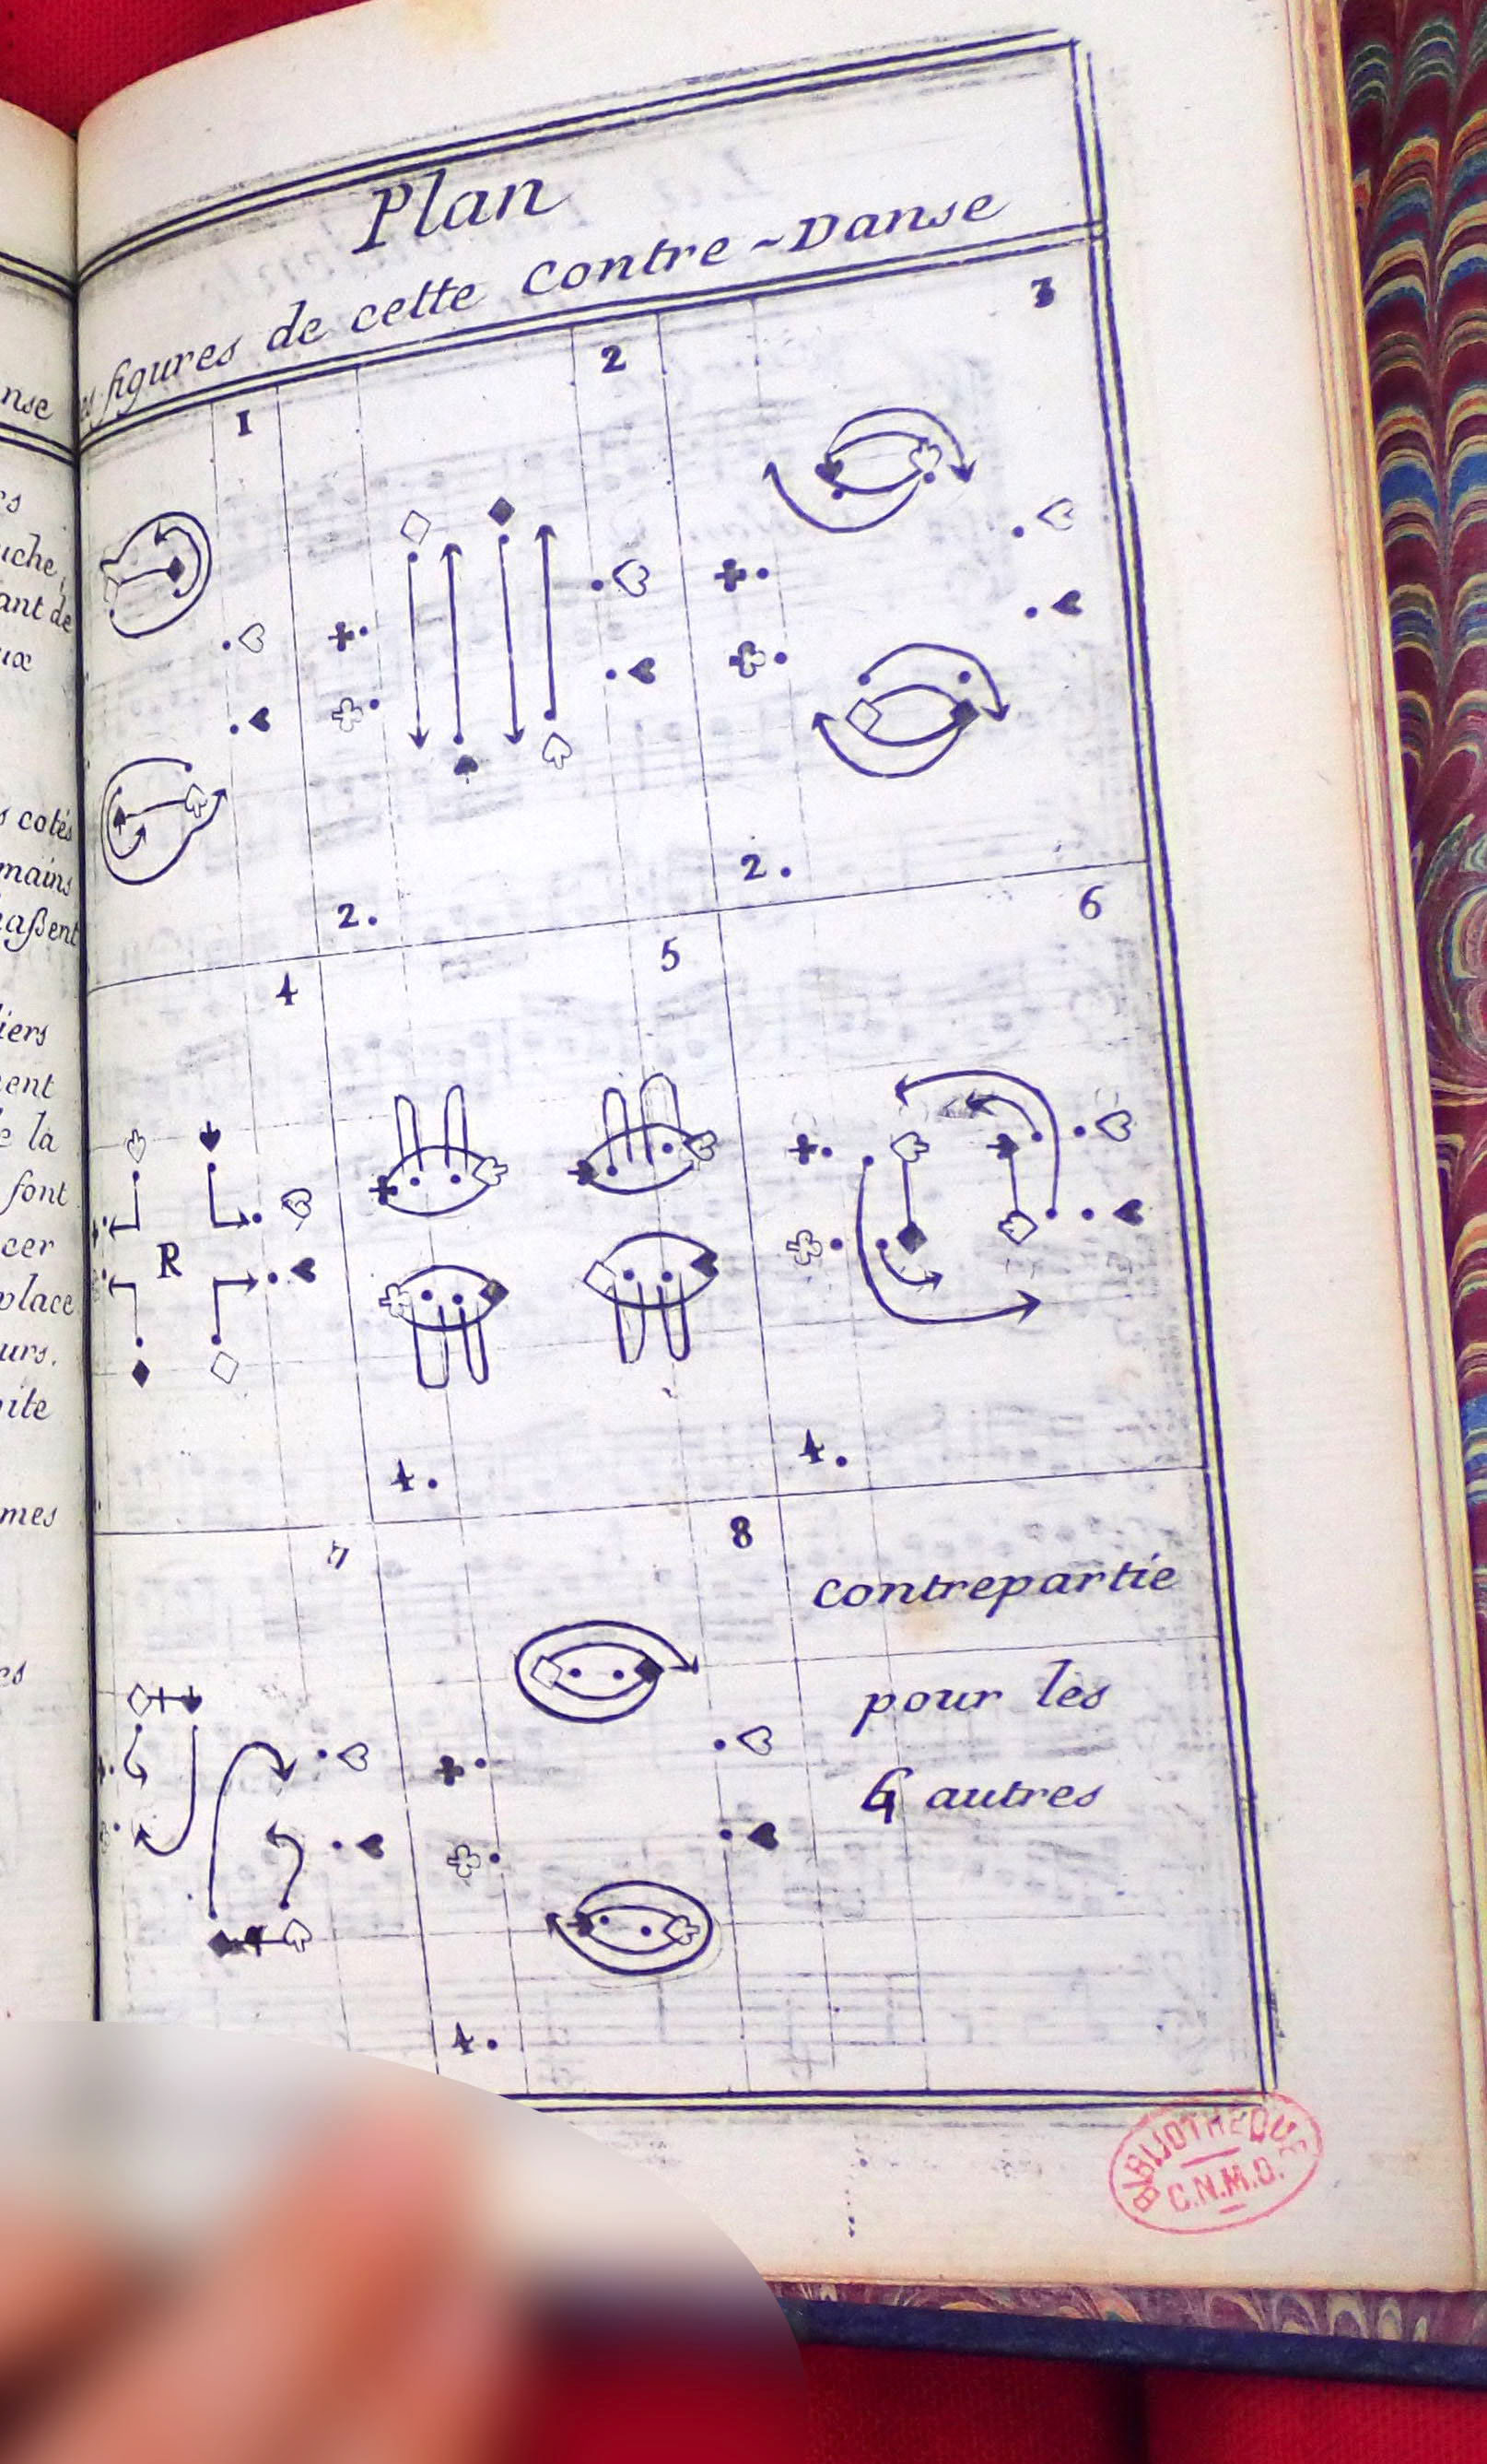 nse
uche,
ant de
ux
s cotés
mains
haßent
iers
ment
e la
font
cer
place
urs.
ite
mes
es
Plan
es figures de cette Contre-Danse
1
2
3
2.
2.
4
5
6
R
4.
4.
7
8
contrepartie
pour les
4 autres
4.
BIBLIOTHEQUE
C.N.M.D.